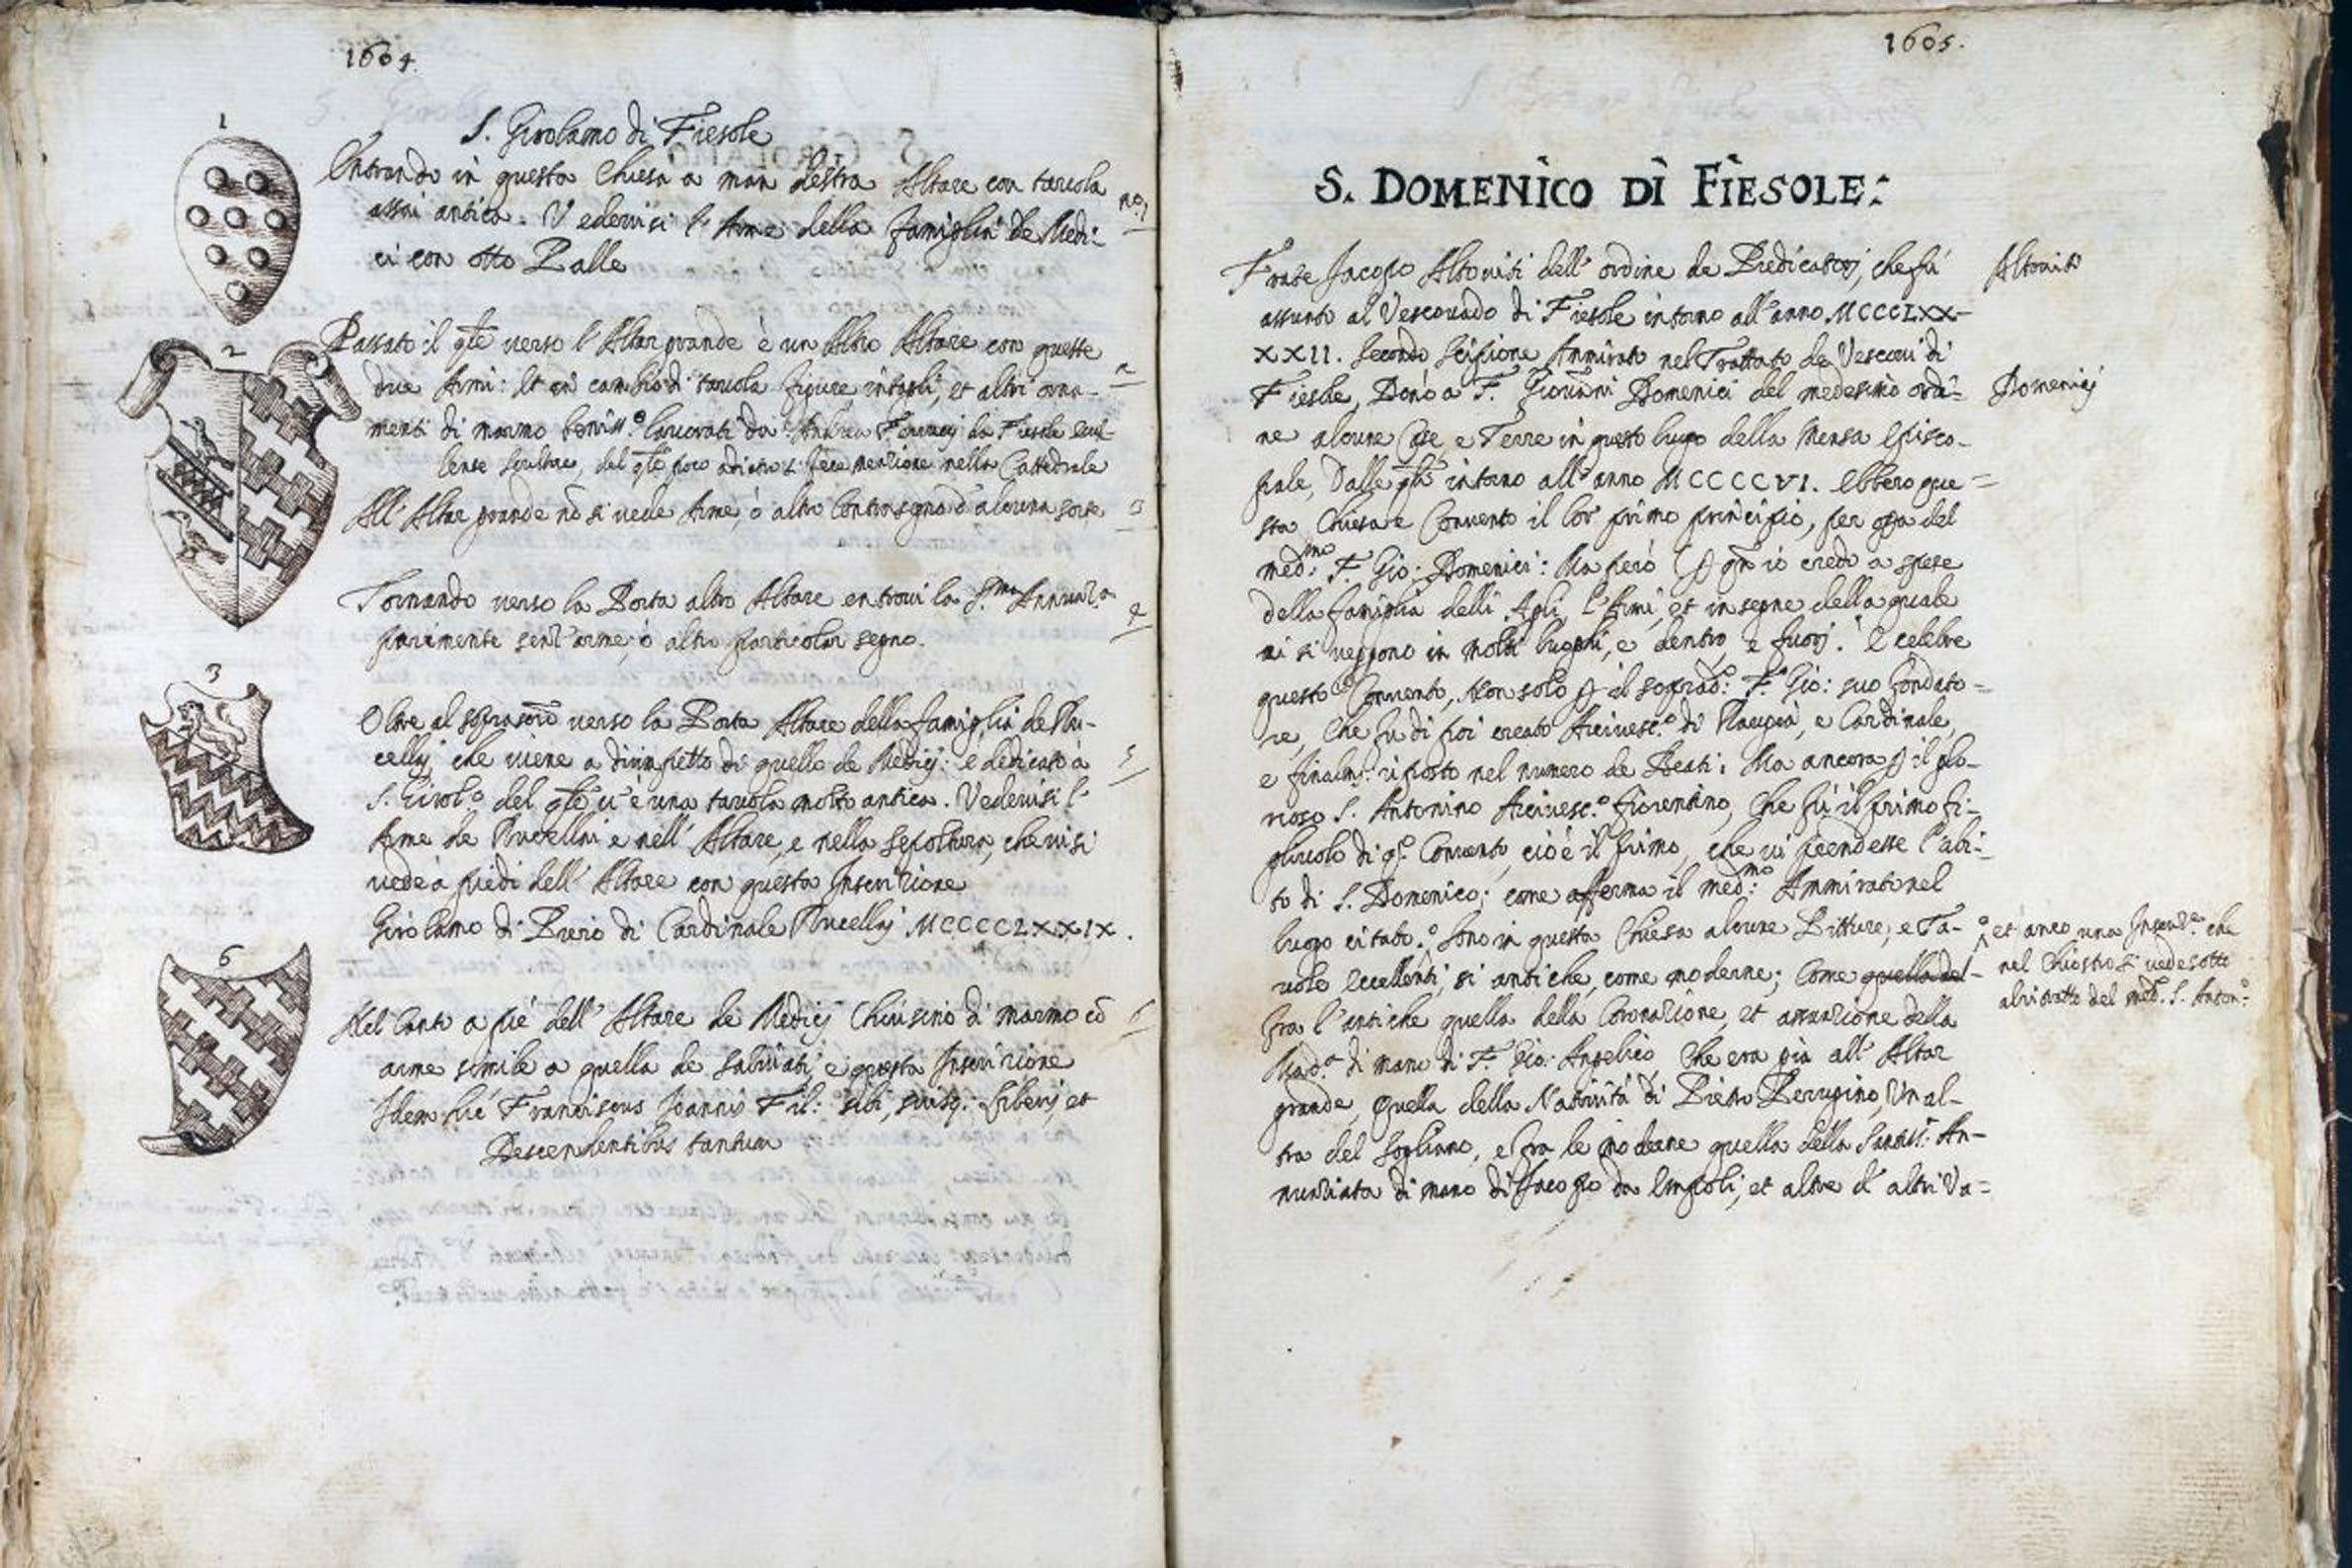 1604.
1
S. Girolamo di Fiesole
Entrando in questa Chiesa a man destra Altare con tavola
assai antica. Vedevisi l'Arme della famiglia de Medi-
ci con otto Palle
no. 1
2
Passato il qle verso l'Altar grande è un Altro Altare con queste
due Armi: Et in cambio di tavola figure, intagli, et altri orna-
2
menti di marmo beniss.o lavorati da Andrea Ferrucci da Fiesole Ecel-
lente scultore, del qle poco adietro si fece menzione nella Cattedrale
All'Altar grande nō si vede Arme, ò altro Contrasegno d'alcuna sorte
3
Tornando verso la Porta altro Altare entrovi la S.ma Annunz.a
4
parimente senz'arme, ò altro particolar segno.
3
Oltre al soprascō verso la Porta Altare della famiglia de Ru-
cellaj, che viene a dirimpetto di quello de Medicj: è dedicato à
5
S. Girol.o del qle v'è una tavola molto antica. Vedevisi l'
Arme de Rucellai e nell'Altare, e nella sepoltura, che vi si
vede à piedi dell'Altare con questa Inscrizione
Girolamo di Piero di Cardinale Rucellaj MCCCCLXXIX.
6
Nel Canto a piè dell'Altare de Medicj Chiusino di marmo cō
6
arme simile a quella de Salviati, e questa Inscrizione
Idem hic Franciscus Joannis Fil: sibi, suisq: Liberis, et
Descendentibus tantum
1605.
S. DOMENICO DI FIESOLE:
Frate Jacopo Altoviti dell'ordine de Predicatorj, che fù
Altoviti
assunto al Vescovado di Fiesole intorno all'anno MCCCLXX-
XXII. Secondo Scipione Ammirato nel Trattato de Vescovi di
Fiesole, Donò a F. Giovanni Domenici del medesimo ordi-
Domenicj
ne alcune Case, e Terre in questo luogo della Mensa Episco-
pale, Dalle qli intorno all'anno MCCCCVI. Ebbero que-
sta Chiesa e Convento il lor primo principio, per opa del
med:mo F. Gio: Domenici: Ma però p qn io credo a spese
della famiglia delli Agli, l'Armi, et insegne della quale
vi si veggono in molti luoghi, e dentro, e fuorj. È celebre
questo Convento, Non solo p il soprad:o F. Gio: suo fondato-
re, Che fu di poi creato Arcivesc.o di Raugia, e Cardinale,
e finalm: riposto nel numero de Beati: Ma ancora p il glo-
rioso S. Antonino Arcivesc.o fiorentino, Che fù il primo fi-
gliuolo di qs.o Convento, cioè il primo, che vi prendesse l'abi-
to di S. Domenico; come afferma il med:mo Ammirato nel
luogo citato. Sono in questa Chiesa alcune Pitture, e Ta-
o et anco una Inscriz.e che
nel Chiostro si vede sotto
al ritratto del med. S. Anton:o
vole eccellenti, si antiche, come moderne; Come quella del-
fra l'antiche quella della Coronazione, et assunzione della
Mad.a di mano di F. Gio: Angelico Che era già all'Altar
grande, Quella della Natività di Pietro Perugino, Un al-
tra del Sogliano, e fra le moderne quella della Santiss: An-
nunziata di mano di Jacopo da Empoli, et altre d'altri Va-